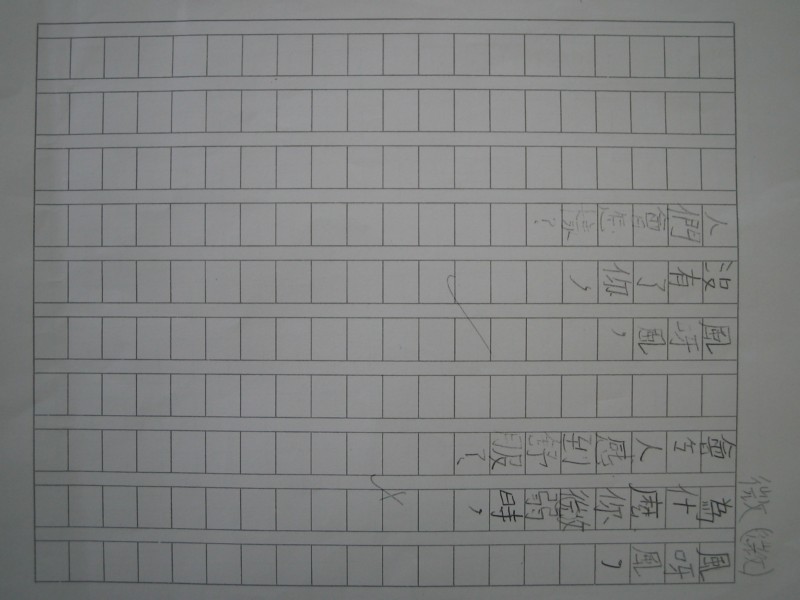 風呀風，
為什麼你微弱時，
會令人感到舒服？
風呀風，
沒有了你，
人們會怎樣？
微